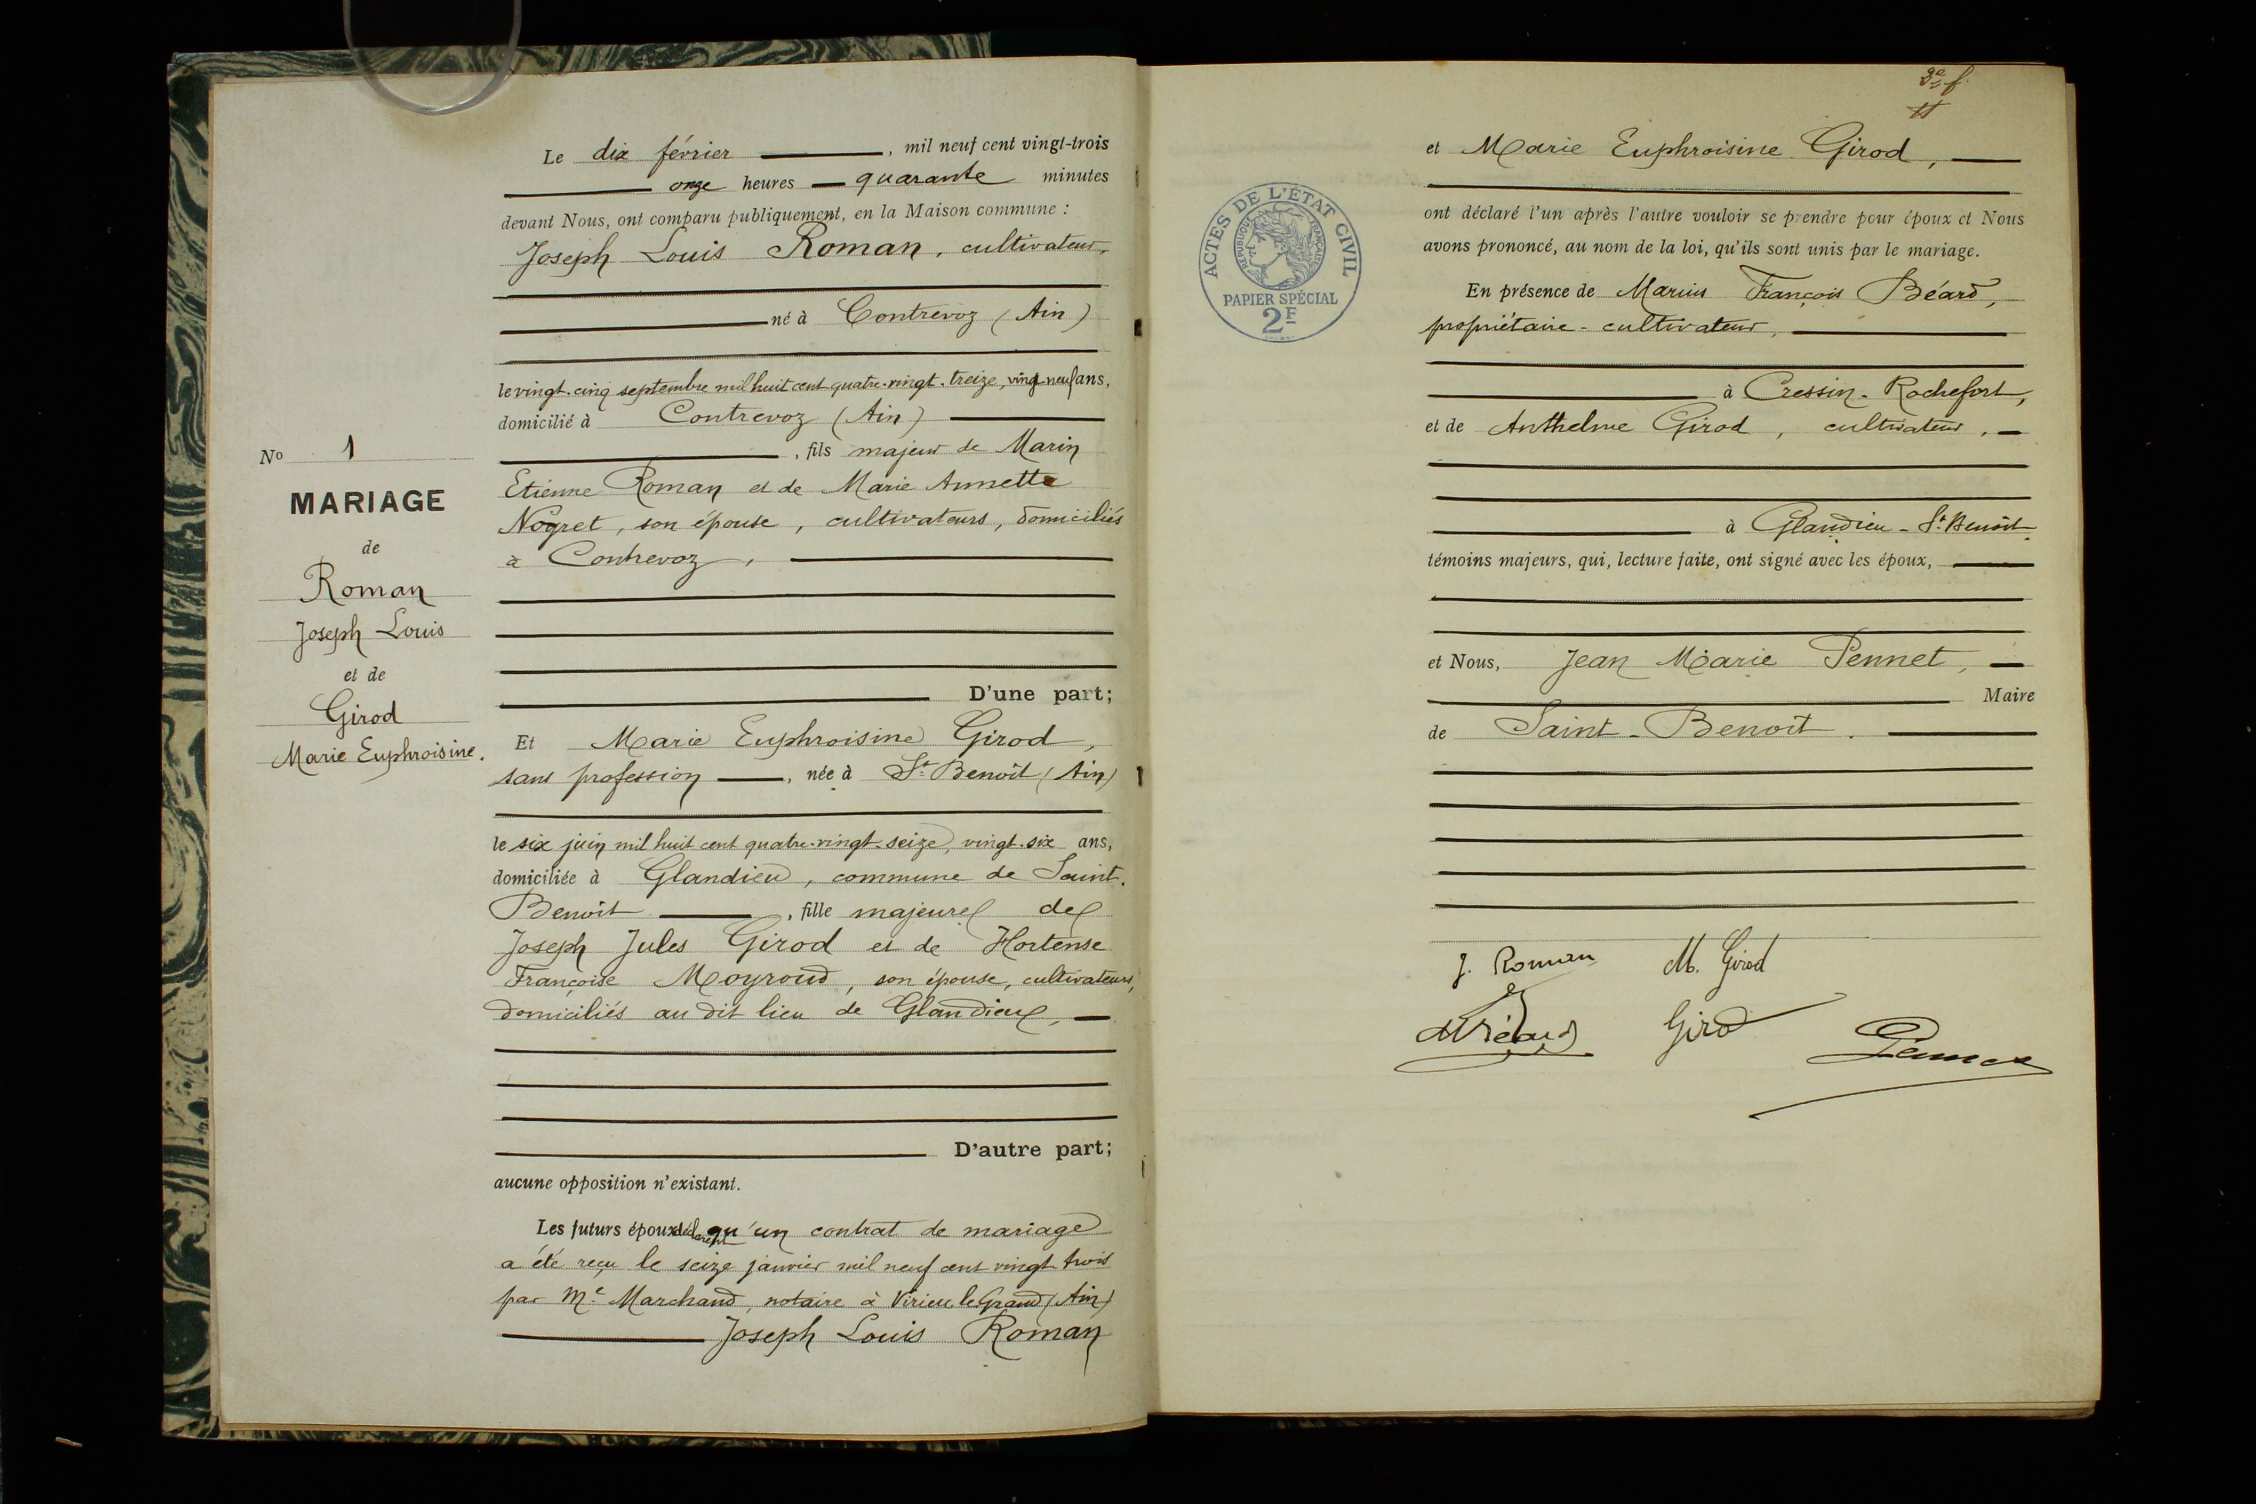 Le dix février, mil neuf cent vingt-trois
onze heures quarante minutes
devant Nous, ont comparu publiquement, en la Maison commune :
Joseph Louis Roman, cultivateur,
né à Contrevoz (Ain)
le vingt-cinq septembre mil huit cent quatre-vingt-treize, vingt-neuf ans,
domicilié à Contrevoz (Ain)
, fils majeur de Marin
Etienne Roman et de Marie Annette
Nogret, son épouse, cultivateurs, domiciliés
à Contrevoz,
D'une part;
No 1
MARIAGE
de
Roman
Joseph Louis
et de
Girod
Marie Euphroisine.
Et Marie Euphroisine Girod,
sans profession, née à St Benoît (Ain)
le six juin mil huit cent quatre-vingt-seize, vingt-six ans,
domiciliée à Glandieu, commune de Saint-
Benoît, fille majeure de
Joseph Jules Girod et de Hortense
Françoise Moyroud, son épouse, cultivateurs,
domiciliés au dit lieu de Glandieu,
D'autre part;
aucune opposition n'existant.
Les futurs époux déclarent qu'un contrat de mariage
a été reçu le seize janvier mil neuf cent vingt trois
par Me Marchand, notaire à Virieu le Grand (Ain)
Joseph Louis Roman
3e f.
et Marie Euphroisine Girod,
ont déclaré l'un après l'autre vouloir se prendre pour époux et Nous
avons prononcé, au nom de la loi, qu'ils sont unis par le mariage.
ACTES DE L'ÉTAT CIVIL
RÉPUBLIQUE FRANÇAISE
PAPIER SPÉCIAL
2F
En présence de Marius François Béard,
propriétaire-cultivateur,
à Cressin-Rochefort,
et de Anthelme Girod, cultivateur,
à Glandieu-St Benoît.
témoins majeurs, qui, lecture faite, ont signé avec les époux,
et Nous, Jean Marie Pennet,
Maire
de Saint-Benoît.
J. Roman M. Girod
Béard Girod Pennet